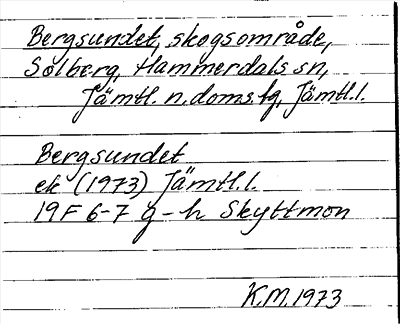 Bergsundet, skogsområde,
Solberg, Hammerdals sn,
Jämtl. n. doms. lg, Jämtl. l.
Bergsundet
ek (1973) Jämtl. l.
19F 6-7 g-h Skyttmon
K.M. 1973